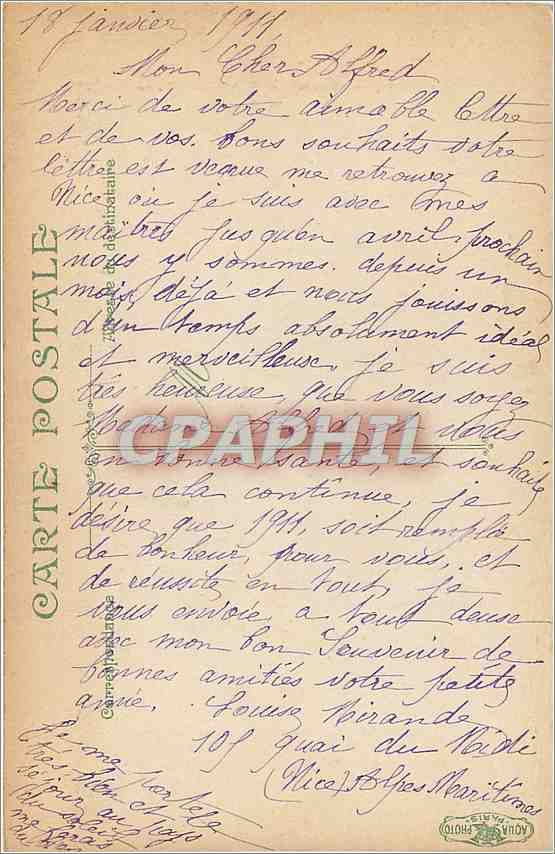 18 janvier 1911
Mon Cher Alfred
Merci de votre aimable lettre
et de vos bons souhaits votre
lettre est venue me retrouver a
Nice ou je suis avec mes
maîtres jusqu'en avril prochain
nous y sommes depuis un
mois déjà et nous jouissons
d'un temps absolument idéal
et merveilleuse, je suis
très heureuse, que vous soyez
Madame Alfred et vous
en bonne santé, et souhaite
que cela continue, je
désire que 1911, soit remplie
de bonheur, pour vous, et
de réussite en tout, je
vous envoie a tout deuse
avec mon bon Souvenir de
bonnes amitiés votre petite
amie. Louise Mirande
105 quai du Midi
(Nice) Alpes Maritimes
Je me porte
très bien et
séjour au pays
du soleil
me
du
CARTE POSTALE
Correspondance
Adresse du destinataire
CPAPHIL
AQUA PHOTO
PARIS